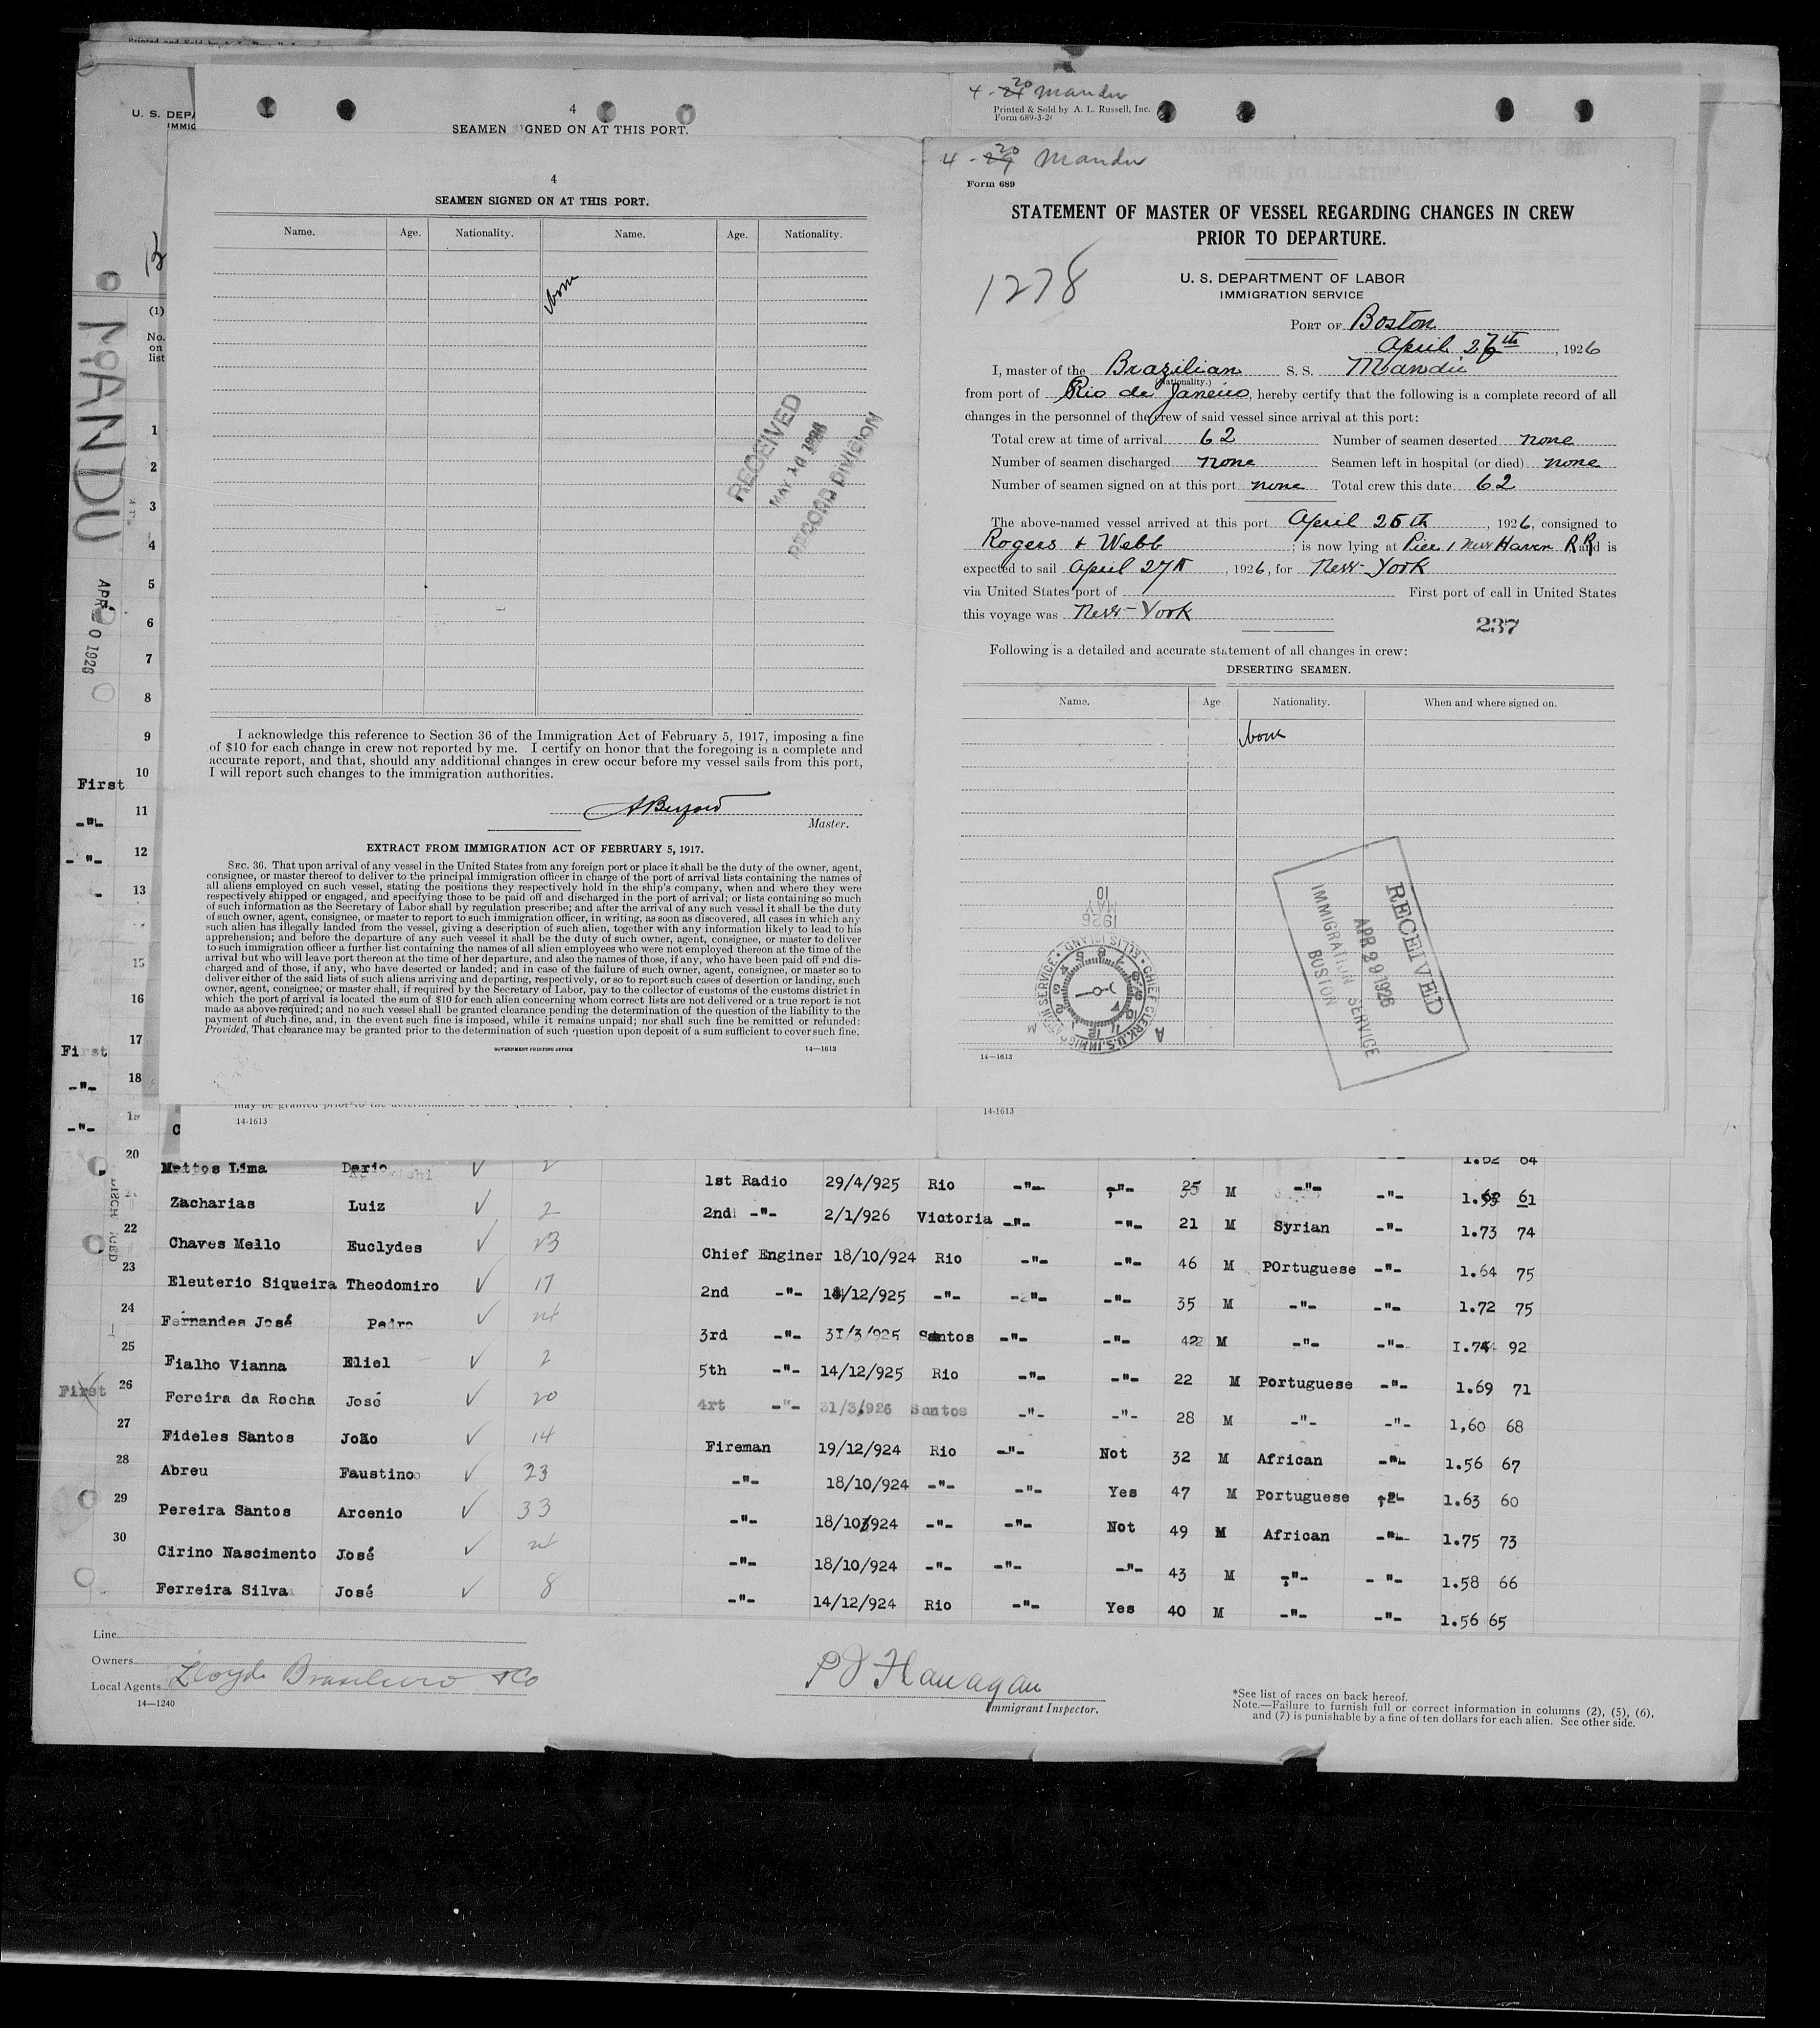 Printed and Sold by A. L. Russell, Inc.
U. S. DEPA
IMMIG
4
SEAMEN SIGNED ON AT THIS PORT.
4-20 Mandu
Printed & Sold by A. L. Russell, Inc.
Form 689-3-26
MANDU
APR 20 1926
(1)
No.
on
list
1
2
3
4
5
6
7
8
9
10
11
12
13
15
16
17
18
19
20
First
-"-
-"-
-
First
-"-
-"-
4
SEAMEN SIGNED ON AT THIS PORT.
Name. Age. Nationality. Name. Age. Nationality.
None
RECEIVED
MAY 10 1926
RECORD DIVISION
I acknowledge this reference to Section 36 of the Immigration Act of February 5, 1917, imposing a fine
of $10 for each change in crew not reported by me. I certify on honor that the foregoing is a complete and
accurate report, and that, should any additional changes in crew occur before my vessel sails from this port,
I will report such changes to the immigration authorities.
Master.
EXTRACT FROM IMMIGRATION ACT OF FEBRUARY 5, 1917.
SEC. 36. That upon arrival of any vessel in the United States from any foreign port or place it shall be the duty of the owner, agent,
consignee, or master thereof to deliver to the principal immigration officer in charge of the port of arrival lists containing the names of
all aliens employed on such vessel, stating the positions they respectively hold in the ship's company, when and where they were
respectively shipped or engaged, and specifying those to be paid off and discharged in the port of arrival; or lists containing so much
of such information as the Secretary of Labor shall by regulation prescribe; and after the arrival of any such vessel it shall be the duty
of such owner, agent, consignee, or master to report to such immigration officer, in writing, as soon as discovered, all cases in which any
such alien has illegally landed from the vessel, giving a description of such alien, together with any information likely to lead to his
apprehension; and before the departure of any such vessel it shall be the duty of such owner, agent, consignee, or master to deliver
to such immigration officer a further list containing the names of all alien employees who were not employed thereon at the time of the
arrival but who will leave port thereon at the time of her departure, and also the names of those, if any, who have been paid off and dis-
charged and of those, if any, who have deserted or landed; and in case of the failure of such owner, agent, consignee, or master so to
deliver either of the said lists of such aliens arriving and departing, respectively, or so to report such cases of desertion or landing, such
owner, agent, consignee, or master shall, if required by the Secretary of Labor, pay to the collector of customs of the customs district in
which the port of arrival is located the sum of $10 for each alien concerning whom correct lists are not delivered or a true report is not
made as above required; and no such vessel shall be granted clearance pending the determination of the question of the liability to the
payment of such fine, and, in the event such fine is imposed, while it remains unpaid; nor shall such fine be remitted or refunded:
Provided, That clearance may be granted prior to the determination of such question upon deposit of a sum sufficient to cover such fine.
GOVERNMENT PRINTING OFFICE 14—1613
4-20 Mandu
Form 689
STATEMENT OF MASTER OF VESSEL REGARDING CHANGES IN CREW
PRIOR TO DEPARTURE.
1278
U. S. DEPARTMENT OF LABOR
IMMIGRATION SERVICE
PORT OF Boston
April 26th, 1926
I, master of the Brazilian S. S. Mandú
(Nationality.)
from port of Rio de Janeiro, hereby certify that the following is a complete record of all
changes in the personnel of the crew of said vessel since arrival at this port:
Total crew at time of arrival 62 Number of seamen deserted none
Number of seamen discharged none Seamen left in hospital (or died) none
Number of seamen signed on at this port none Total crew this date 62
The above-named vessel arrived at this port April 25th, 1926, consigned to
Rogers & Webb; is now lying at Pier 1 New Haven RR and is
expected to sail April 27th, 1926, for New-York
via United States port of First port of call in United States
this voyage was New-York
237
Following is a detailed and accurate statement of all changes in crew:
DESERTING SEAMEN.
Name. Age Nationality. When and where signed on.
None
10
MAY
1926
CHIEF CLERK, U.S. IMMIGRATION SERVICE · ELLIS ISLAND ·
RECEIVED
APR 29 1926
IMMIGRATION SERVICE
BOSTON
14—1613
may be granted prior to the determination of such question
14-1613 14-1613
1.52 64
Mattos Lima Dario 2 1st Radio 29/4/925 Rio -"- -"- 25 M -"- -"- 1.62 61
Zacharias Luiz 2 2nd -"- 2/1/926 Victoria -"- -"- 21 M Syrian -"- 1.73 74
22 Chaves Mello Euclydes 23 Chief Enginer 18/10/924 Rio -"- -"- 46 M POrtuguese -"- 1.64 75
23 Eleuterio Siqueira Theodomiro 17 2nd -"- 14/12/925 -"- -"- -"- 35 M -"- -"- 1.72 75
24 Fernandes José Pedro 3rd -"- 31/3/925 Santos -"- 42 M -"- -"- 1.74 92
25 Fialho Vianna Eliel 2 5th -"- 14/12/925 Rio -"- -"- 22 M Portuguese -"- 1.69 71
First 26 Fereira da Rocha José 20 4rt -"- 31/3/926 Santos -"- -"- 28 M -"- -"- 1,60 68
27 Fideles Santos João 14 Fireman 19/12/924 Rio -"- Not 32 M African -"- 1.56 67
28 Abreu Faustino 23 -"- 18/10/924 -"- -"- Yes 47 M Portuguese -"- 1.63 60
29 Pereira Santos Arcenio 33 -"- 18/10/924 -"- -"- Not 49 M African -"- 1.75 73
30 Cirino Nascimento José -"- 18/10/924 -"- -"- -"- 43 M -"- -"- 1.58 66
Ferreira Silva José 8 -"- 14/12/924 Rio -"- Yes 40 M -"- -"- 1.56 65
Line
Owners
Local Agents Lloyd Brasileiro & Co
14—1240
P J Flanagan
Immigrant Inspector.
*See list of races on back hereof.
Note.—Failure to furnish full or correct information in columns (2), (5), (6),
and (7) is punishable by a fine of ten dollars for each alien. See other side.